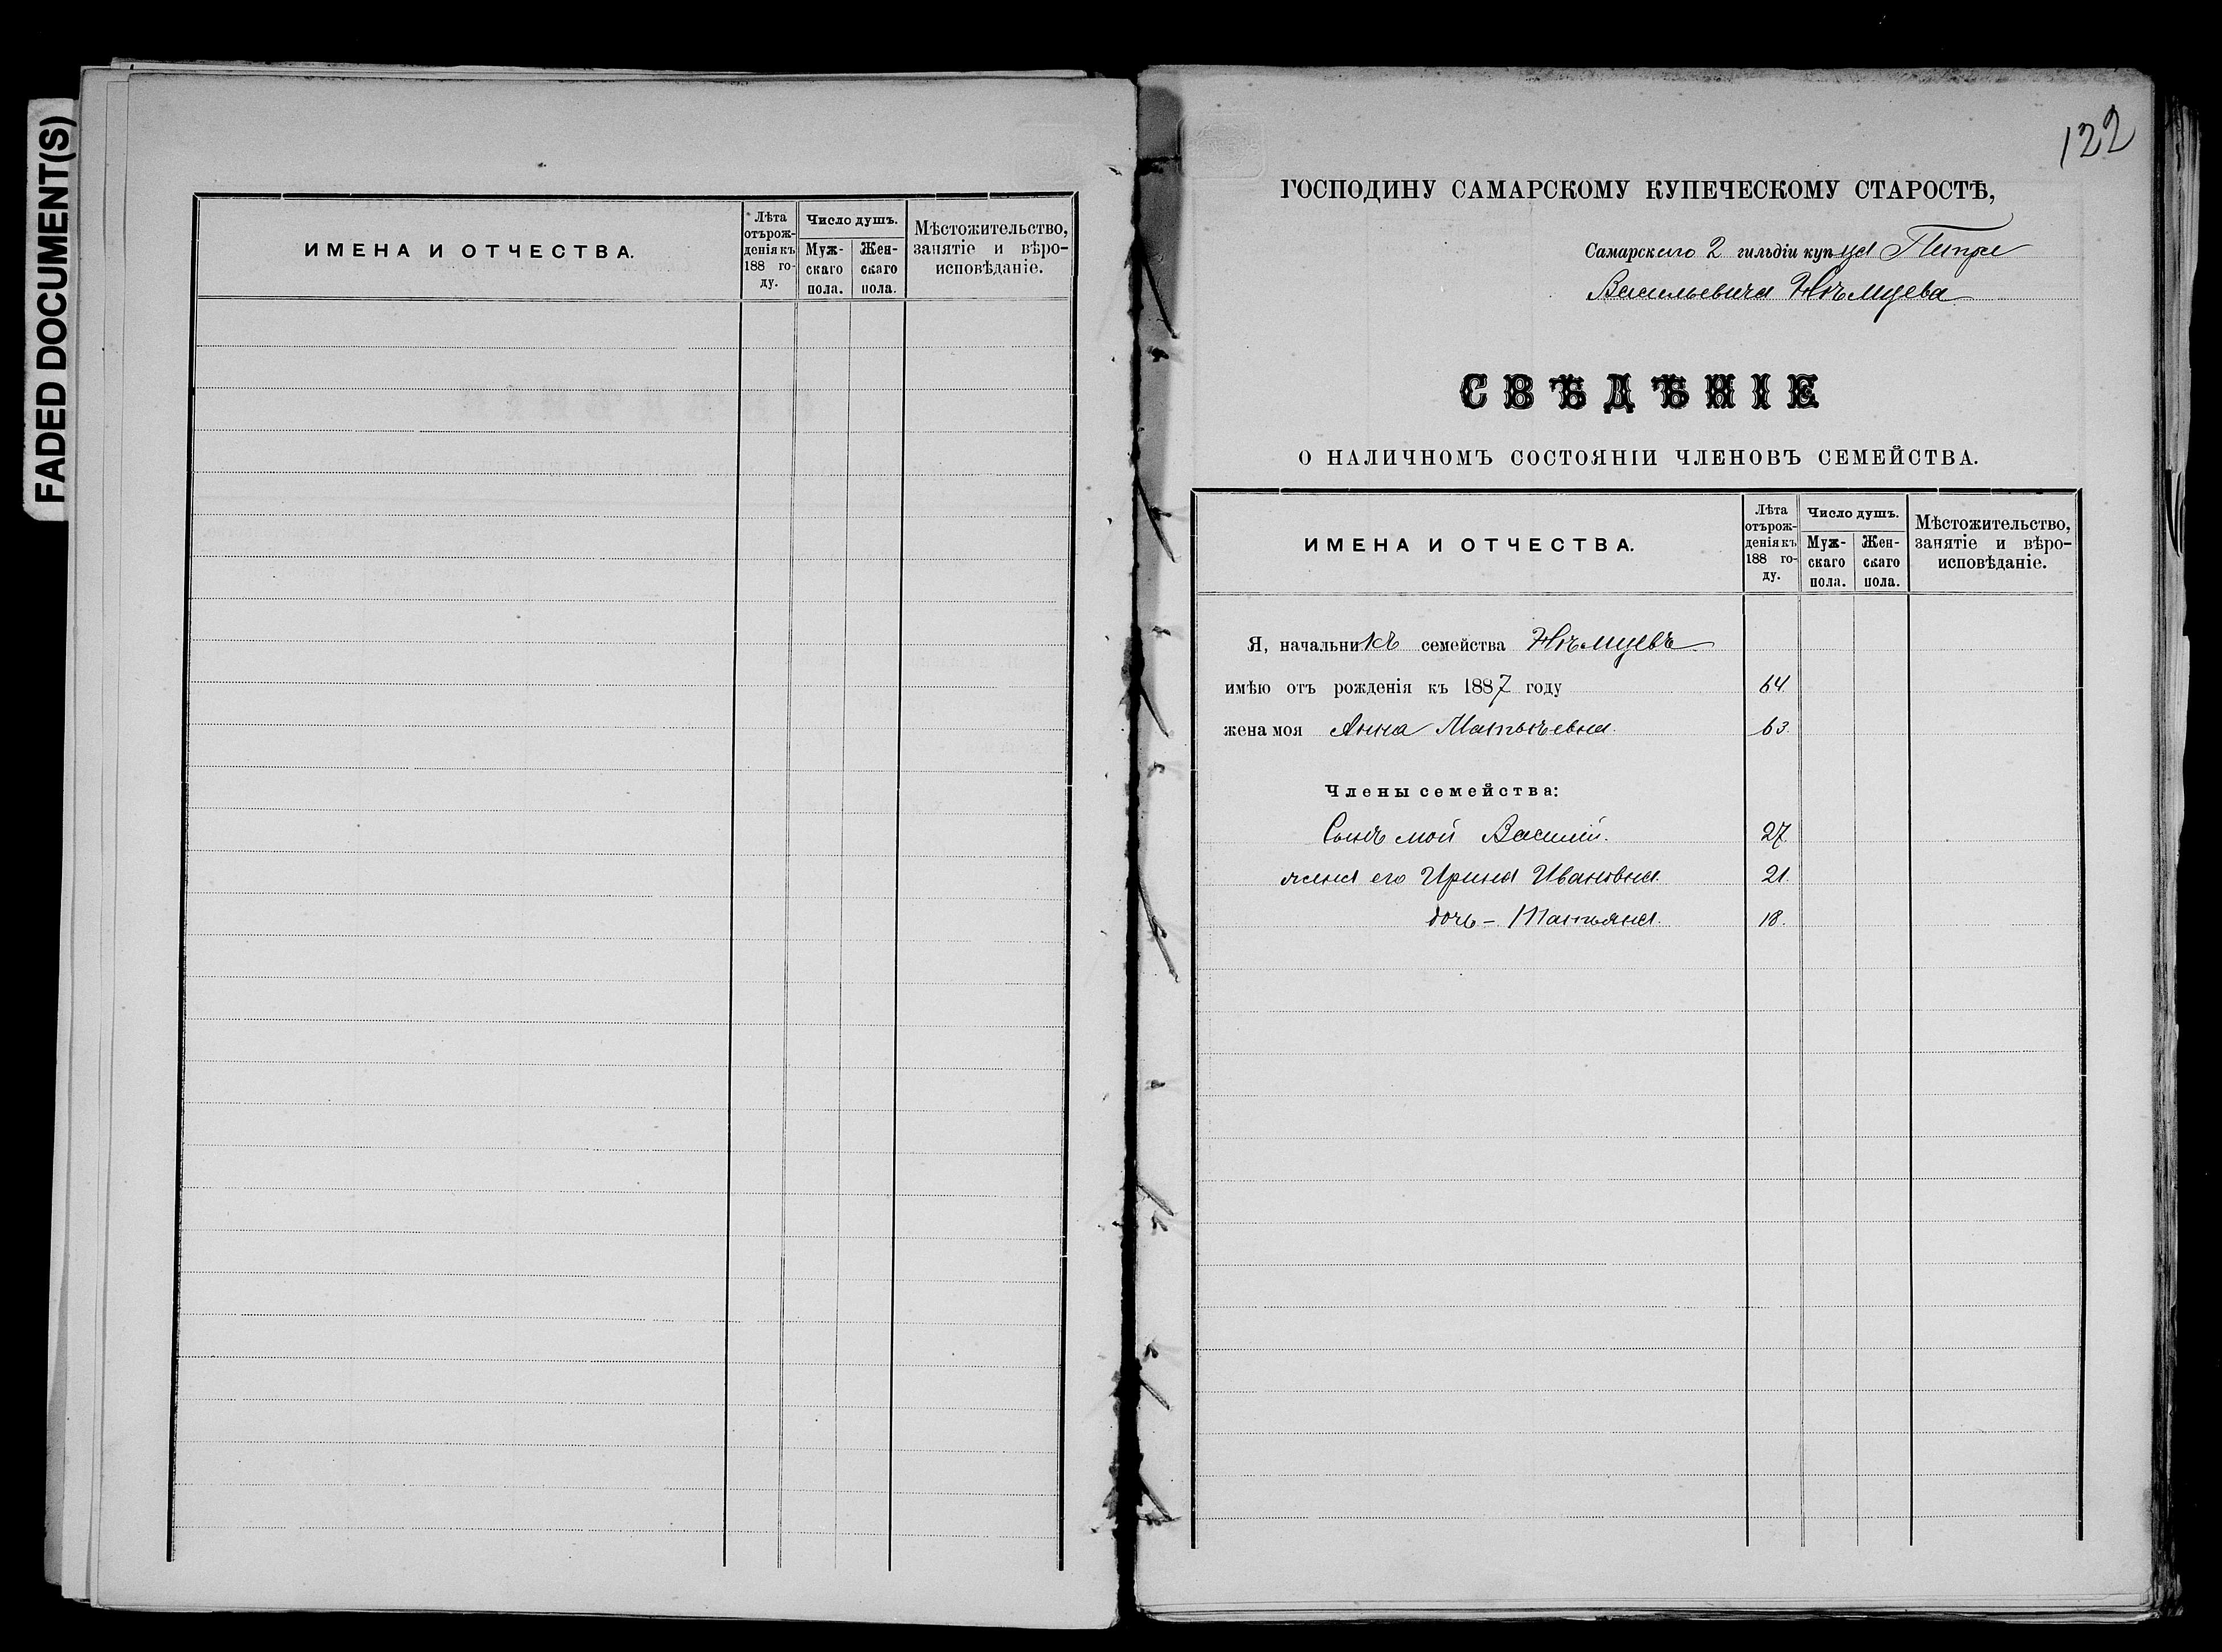 FADED DOCUMENT(S)
ИМЕНА И ОТЧЕСТВА.
Лѣта отърож-денія къ 188 го-ду.
Число душъ.
Муж-скаго пола.
Жен-скаго пола.
Мѣстожительство, занятіе и вѣро-исповѣданіе.
122
ГОСПОДИНУ САМАРСКОМУ КУПЕЧЕСКОМУ СТАРОСТѢ,
Самарского 2 гильдіи купца Петра
Васильевича Нѣмцева
СВѢДѢНІЕ
О НАЛИЧНОМЪ СОСТОЯНІИ ЧЛЕНОВЪ СЕМЕЙСТВА.
ИМЕНА И ОТЧЕСТВА.
Лѣта отърож-денія къ 188 го-ду.
Число душъ.
Муж-скаго пола.
Жен-скаго пола.
Мѣстожительство, занятіе и вѣро-исповѣданіе.
Я, начальникъ семейства Нѣмцевъ
имѣю отъ рожденія къ 1887 году 64.
жена моя Анна Матвѣевна. 63.
Члены семейства:
Сынъ мой Василій. 27.
жена его Ирина Ивановна. 21.
дочь - Татьяна. 18.